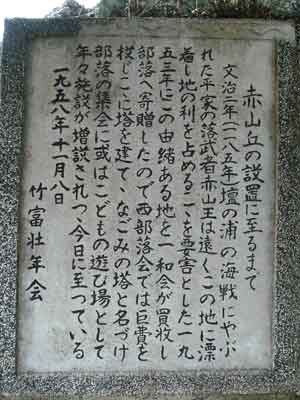 赤山丘の設置に至るまで
文治二年(一一八五年壇の浦の海戦にやぶ
れた平家の落武者赤山王は遠くこの地に漂
着し地の利を占めるこゝを要害とした一九
五三年にこの由緒ある地を一和会が買收し
部落へ寄贈したので西部落会では巨費を
投じこゝに塔を建てなごみの塔と名づけ
部落の集会に或はこどもの遊び場として
年々施設が増設されつゝ今日に至っている
一九五八年十一月八日
竹富壮年会